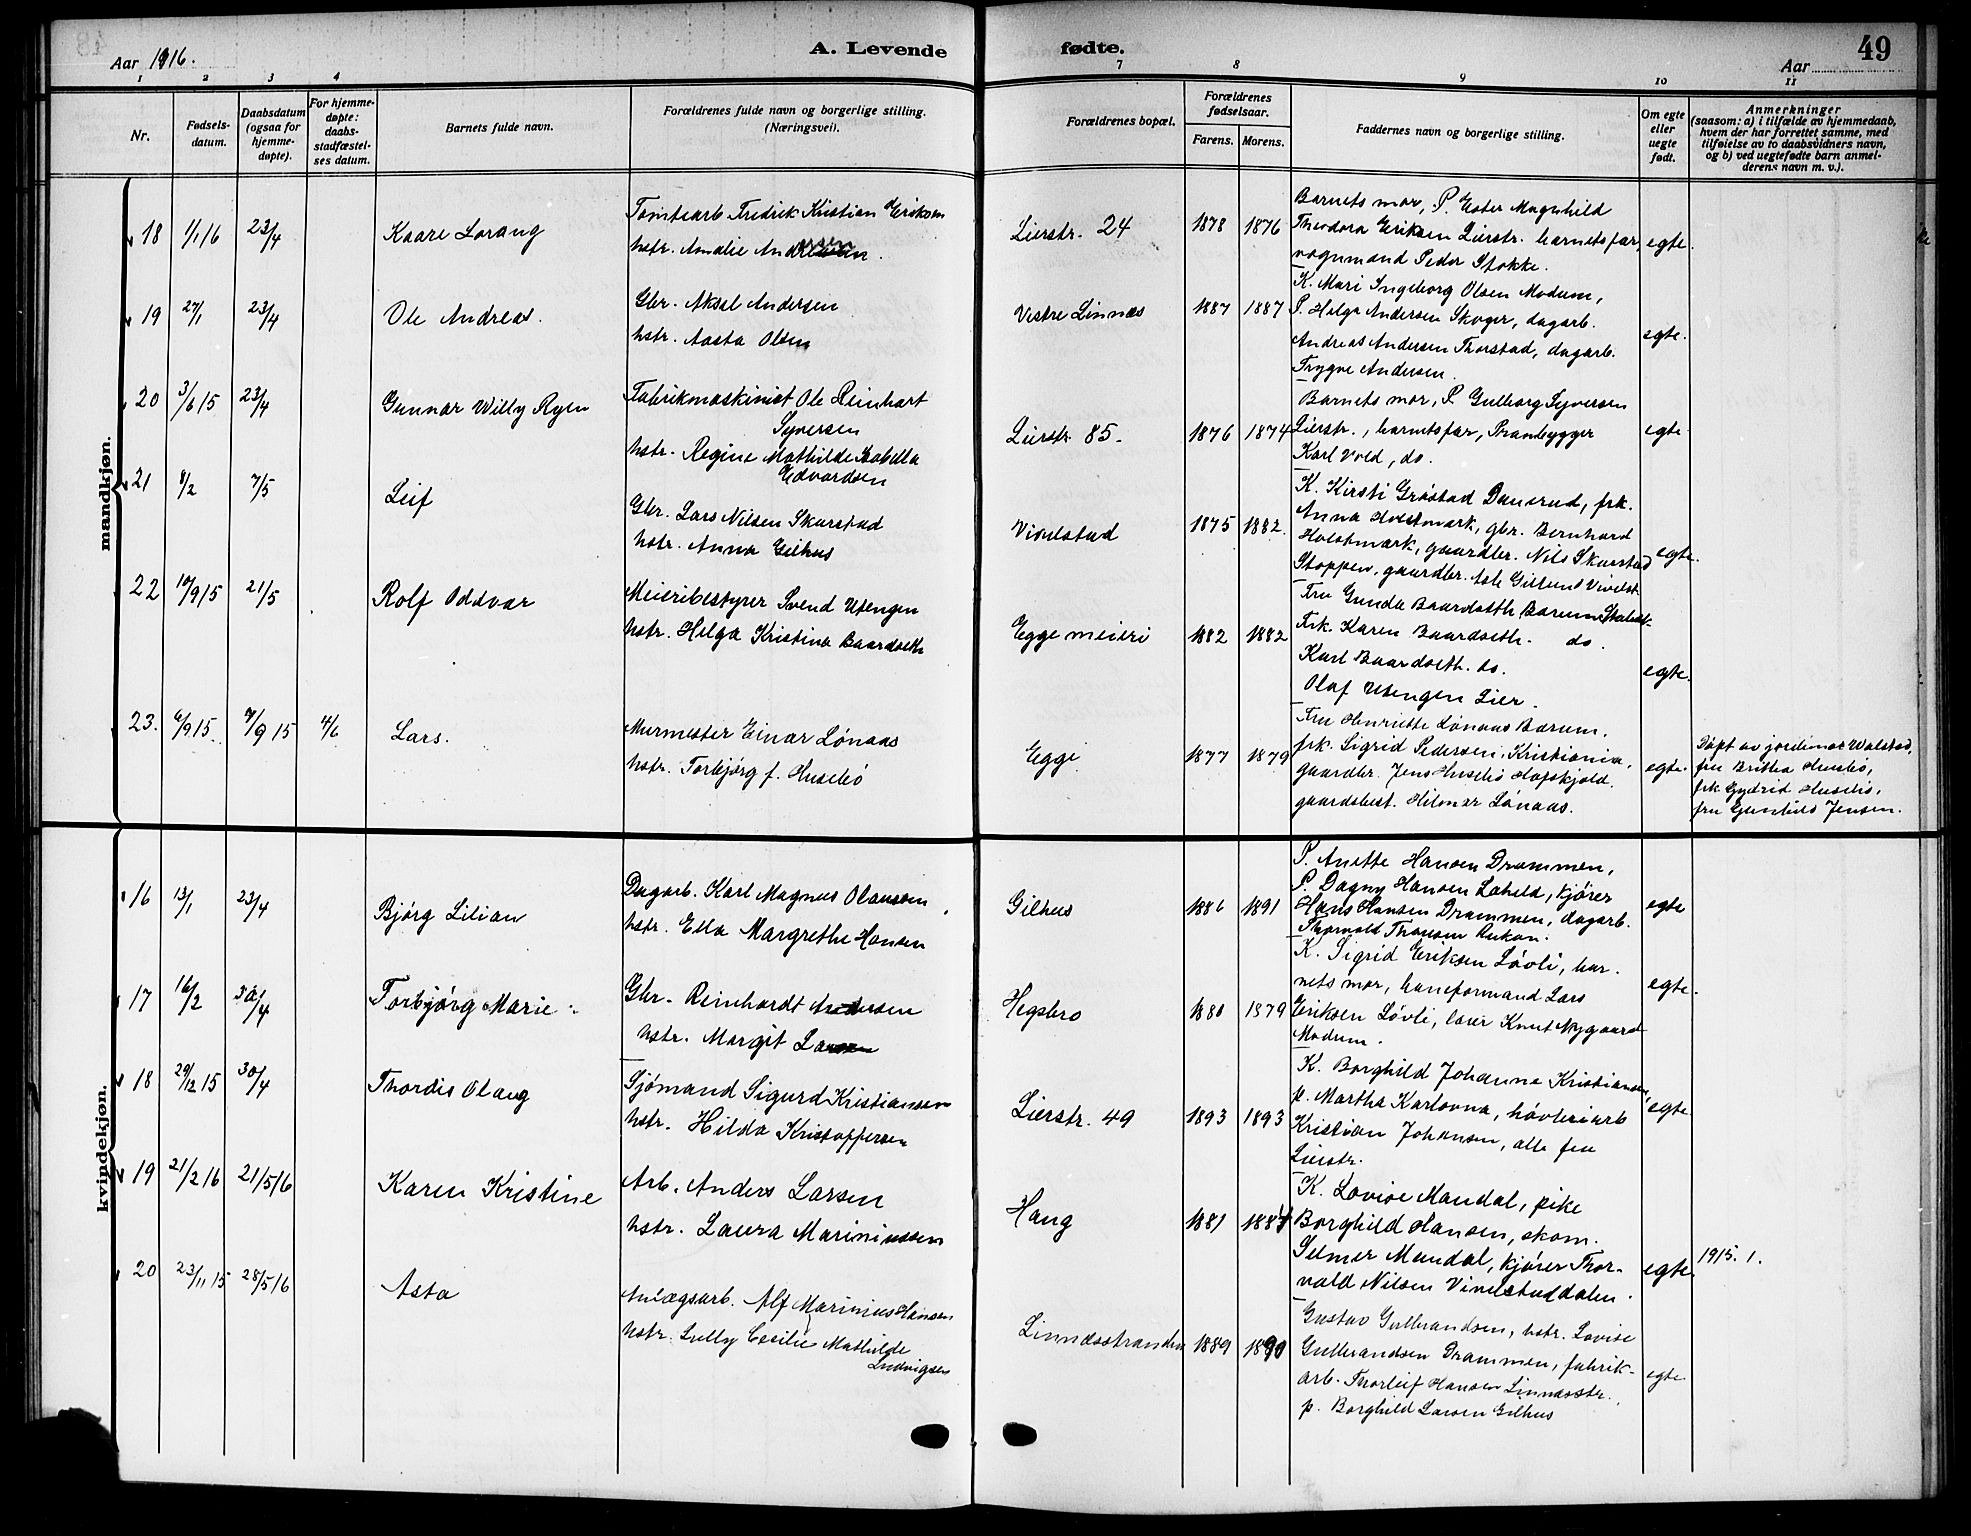 Aar 1916.
A. Levende
fødte.
49
Aar
1 2 3 4
7 8 9 10 11
Nr.
Fødsels-
datum.
Daabsdatum
(ogsaa for
hjemme-
døpte).
For hjemme-
døpte:
daabs-
stadfæstel-
ses datum.
Barnets fulde navn.
Forældrenes fulde navn og borgerlige stilling.
(Næringsvei).
Forældrenes bopæl.
Forældrenes
fødselsaar.
Farens. Morens.
Faddernes navn og borgerlige stilling.
Om egte
eller
uegte
født.
Anmerkninger
(saasom: a) i tilfælde av hjemmedaab,
hvem der har forrettet samme, med
tilføielse av to daabsvidners navn,
og b) ved uegtefødte barn anmel-
derens navn m. v.).
mandkjøn.
18 1/1 16 23/4 Kaare Lorang
Tomtearb Fredrik Kristian Eriksen
hstr. Amalie Andersen.
Lierstr. 24 1878 1876
Barnets mor, P. Ester Magnhild
Theodora Eriksen Lierstr. barnets far,
vognmand Peder Stokke.
egte.
19 27/1 23/4 Ole Andreas.
Gbr. Aksel Andersen
hstr. Aasta Olsen
Vestre Linnes 1887 1887
K. Mari Ingeborg Olsen Modum,
P. Helga Andersen Skoger, dagarb.
Andreas Andersen Thorstad, dagarb.
Trygve Andersen.
egte.
20 3/6 15 23/4 Gunnar Willy Ryen
Fabrikmaskinist Ole Reinhart
Syversen
hstr. Regine Mathilde Isabella
Edvardsen
Lierstr. 85. 1876 1874
Barnets mor, P. Gulborg Syversen
Lierstr., barnets far, Prambygger
Karl Vold, do.
egte
21 8/2 7/5 Leif
Gbr. Lars Nilsen Skurstad
hstr. Anna Gilhus
Vivelstad 1875 1882.
K. Kirsti Grøstad Danerud, frk.
Anna Holstmark, gbr. Bernhard
Holstmark, gaardbr. Nils Skurstad
Stoppen, gaardbr. Asle Gillund Vivelst.
egte.
22 10/9 15 21/5 Rolf Oddvar
Meieribestyrer Svend Utengen
hstr. Helga Kristina Baardseth
Egge meieri 1882 1882
Fru Gunda Baardseth Bærum
Frk. Karen Baardseth. do.
Karl Baardseth. do.
Olaf Utengen Lier.
egte.
23. 6/9 15. 7/9 15 4/6 Lars.
Murmester Einar Lønaas
hstr. Torbjørg f. Husebø
Egge 1877 1879
Fru Henriette Lønaas Bærum.
frk. Sigrid Pedersen, Kristiania,
gaardbr. Jens Husebø Hofskjold.
gaardsbest. Hilmar Lønaas.
egte.
Døpt av jordmor Walstad,
fru Britha Husebø,
frk Gydrid Husebø,
fru Gunhild Jensen.
kvindekjøn.
16 13/1 23/4 Bjørg Lilian
Dagarb. Karl Magnus Olaussen
hstr. Ella Margrethe Hansen
Gilhus 1886 1891
P. Anette Hansen Drammen,
P. Dagny Hansen Laheld, kjører
Hans Hansen Drammen, dagarb.
Thorvald Thoresen Rukan.
egte
17 16/2 30/4 Torbjørg Marie
Gbr. Reinhardt Andersen
hstr. Margit Larsen
Hegsbro 1880 1879
K. Sigrid Eriksen Løvli, bar-
nets mor, baneformand Lars
Eriksen Løvli, lærer Knut Nygaard
Modum.
egte.
18 29/12 15 30/4 Thordis Olaug
Sjømand Sigurd Kristiansen
hstr. Hilda Kristoffersen
Lierstr. 49 1893 1893
K. Borghild Johanne Kristiansen,
p. Martha Karlovna, høvleriarb
Kristian Johansen, alle fra
Lierstr.
egte
19 21/2 16 21/5 16 Karen Kristine
Arb. Anders Larsen
hstr. Laura Mariniussen
Haug 1881 1881
K. Lovise Mandal, pike
Borghild Hansen, skom.
Selmer Mandal, kjører Thor-
vald Nilsen Vivelstaddalen.
egte.
1915. 1.
20 23/11 15 28/5 16 Asta
Anlægsarb. Alf Marinius Hansen
hstr. Lully Cecilie Mathilde
Ludvigsen
Linnesstranden 1889 1890
Gustav Gulbrandsen, hstr. Lovise
Gulbrandsen Drammen, fabrik-
arb. Thorleif Hansen Linnesstr.,
p. Borghild Larsen Gilhus
egte